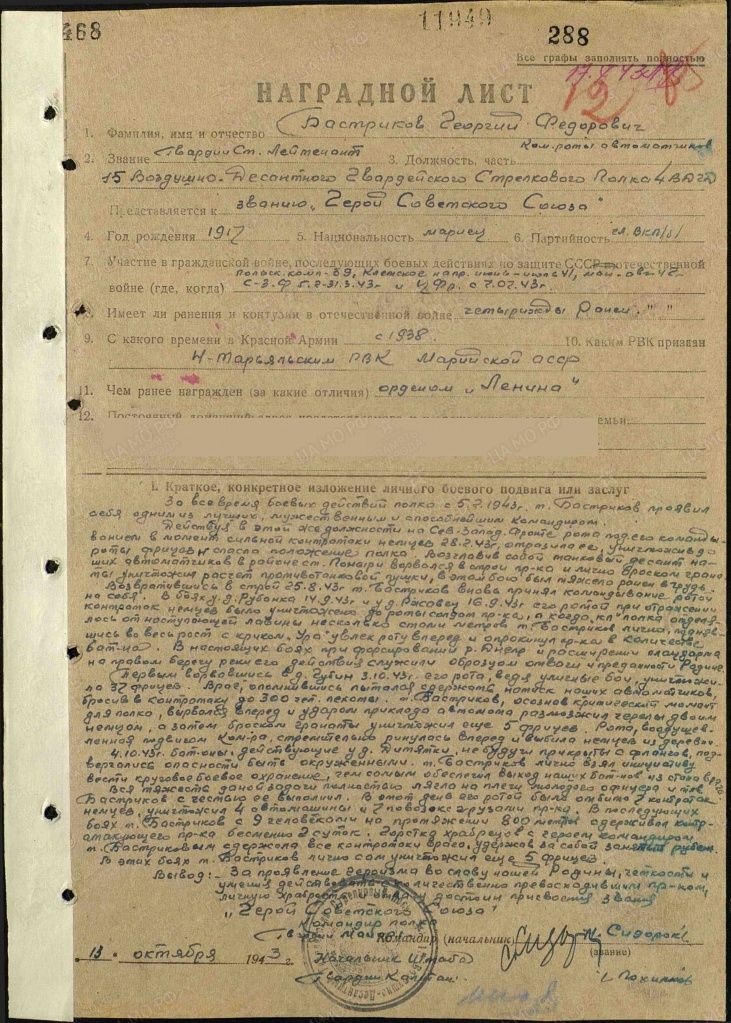 468
11949
288
Все графы заполнять полностью
17.8.43
12
НАГРАДНОЙ ЛИСТ
1. Фамилия, имя и отчество Бастриков Георгий Федорович
2. Звание Гвардии Ст. Лейтенант 3. Должность, часть Ком. роты автоматчиков
15 Воздушно-Десантного Гвардейского Стрелкового Полка 4 ВДГД
Представляется к званию „Герой Советского Союза"
4. Год рождения 1917 5. Национальность мариец 6. Партийность чл. ВКП/б/
7. Участие в гражданской войне, последующих боевых действиях по защите СССР и отечественной
войне (где, когда) С-З.Ф 5.2-31.3.43г и Ц.Фр. с 7.07.43г.
8. Имеет ли ранения и контузии в отечественной войне четырижды Ранен
9. С какого времени в Красной Армии с 1938 10. Каким РВК призван
Н-Тарьяльским РВК Марийской АССР
11. Чем ранее награжден (за какие отличия) орденом „Ленина"
12. Постоянный домашний адрес
I. Краткое, конкретное изложение личного боевого подвига или заслуг
За все время боевых действий полка с 5.2.1943г. т. Бастриков проявил
себя одним из лучших, мужественным и способнейшим командиром.
Действуя в этой же должности на Сев. Запад. Фронте рота под его командо-
ванием в момент сильной контратаки немцев 28.2.43г. отразила ее, уничтожив до
роты фрицев и спасла положение полка. Возглавив собой танковый десант на-
ших автоматчиков в районе ст. Поныри ворвался в строй пр-ка и лично броском грана-
ты уничтожил расчет противотанковой пушки, в этом бою был тяжело ранен в грудь.
Возвратившись в строй 25.8.43г т. Бастриков вновь принял командование ротой
на себя. В боях у д. Рубанка 14.9.43г и у д. Ржавец 16.9.43г его ротой при отражении
контратак немцев было уничтожено до роты солдат пр-ка, а когда, кп полка отделя-
лось от наступающей лавины несколько стоми метров т. Бастриков лично, подняв-
шись во весь рост с криком „Ура" увлек роту вперед и опрокинул вр-ка в количестве
бат-на. В настоящих боях при форсировании р. Днепр и расширении плацдарма
на правом берегу реки его действия служили образцом отваги и преданности Родине.
Первым ворвавшись в д. Губин 3.10.43г. его рота, ведя уличные бои, уничтожи-
ла 37 фрицев. Враг, опомнившись пытался сдержать натиск наших автоматчиков,
бросив в контратаку до 300 чел. пехоты. т. Бастриков, осознав критический момент
для полка, вырвался вперед и ударом приклада автомата размозжил черепы двоим
немцам, а затем броском гранаты уничтожил еще 5 фрицев. Рота, воодушев-
ленная подвигом ком-ра, стремительно ринулась вперед и выбила немцев из деревни.
4.10.43г. бат-оны, действующие у д. Дитятки, не будучи прикрыты с флангов, под-
вергались опасности быть окруженными. т. Бастриков лично взял инициативу
вести круговое боевое охранение, чем самым обеспечил выход наших бат-нов из
Вся тяжесть данной задачи полностью легла на плечи молодого офицера и тов.
Бастриков с честью ее выполнил. В этот день его ротой было отбито 7 контратак
немцев, уничтожил автомашины и 2 повозок с грузами пр-ка. В последующих
боях т. Бастриков с 9 человеками на протяжении 800 метров сдерживал контр-
атакующего пр-ка бесменно 2 суток. Горстка храбрецов с героем командиром
т. Бастриковым сдержала все контратаки врага, удержав за собой занятый рубеж.
В этих боях т. Бастриков лично сам уничтожил еще 5 фрицев.
Вывод:- За проявление героизма во славу нашей Родины, четкости и
умения действовать с количественно превосходившим пр-ком,
личную храбрость и отвагу достоин присвоения звания
„Герой Советского Союза"
Командир полка
Гвардии Майор Командир (начальник) Сидорок
(звание)
13. октября 1943 г. Начальник Штаба
Гвардии Капитан